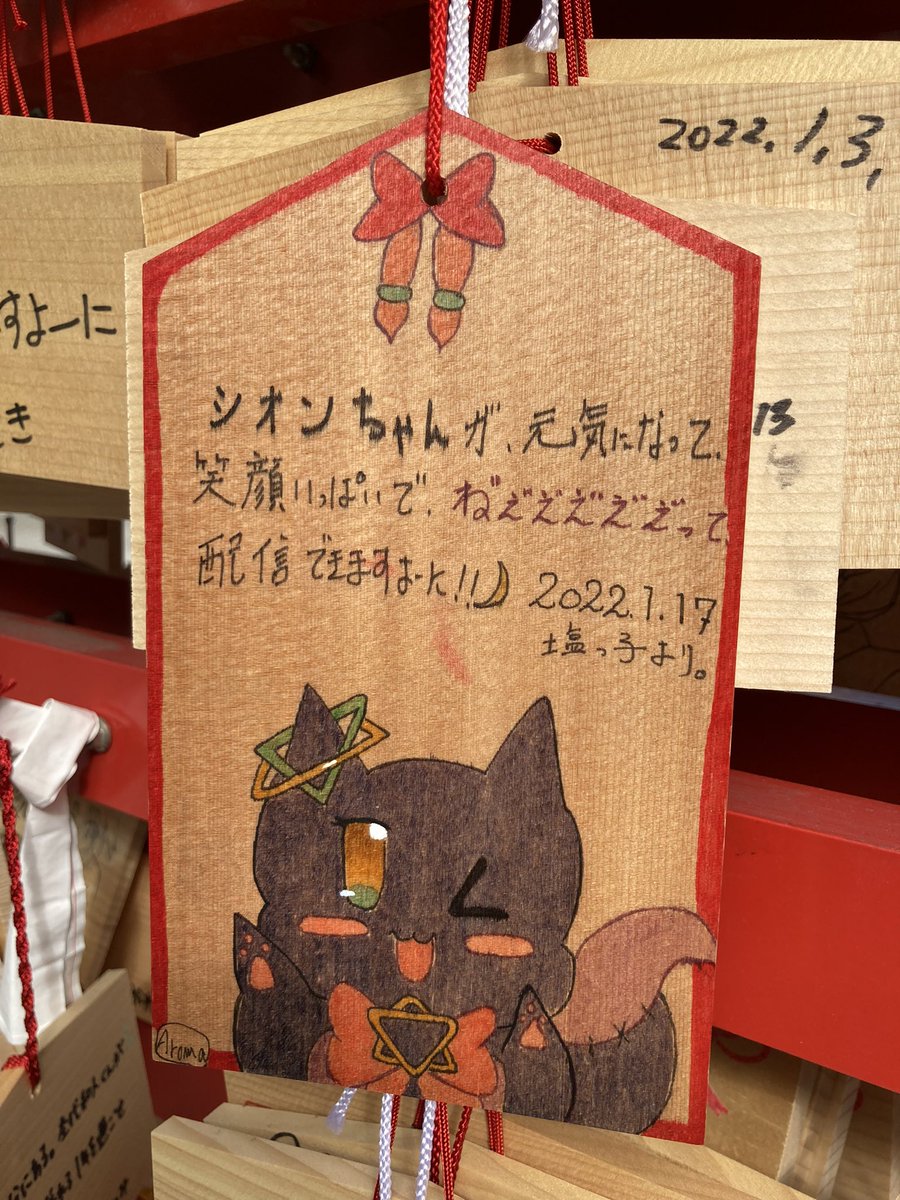 2022.1.3,
すよーに
13
き
シオンちゃんが、元気になって、
笑顔いっぱいで、ねぇぇぇぇぇって、
配信できますよーに!!🌙 2022.1.17
塩っ子より。
Aroma